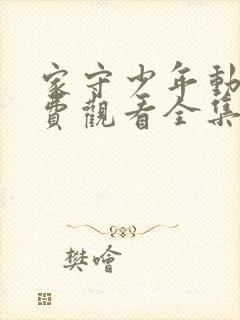 家守少年動
費觀看全集
樊噲